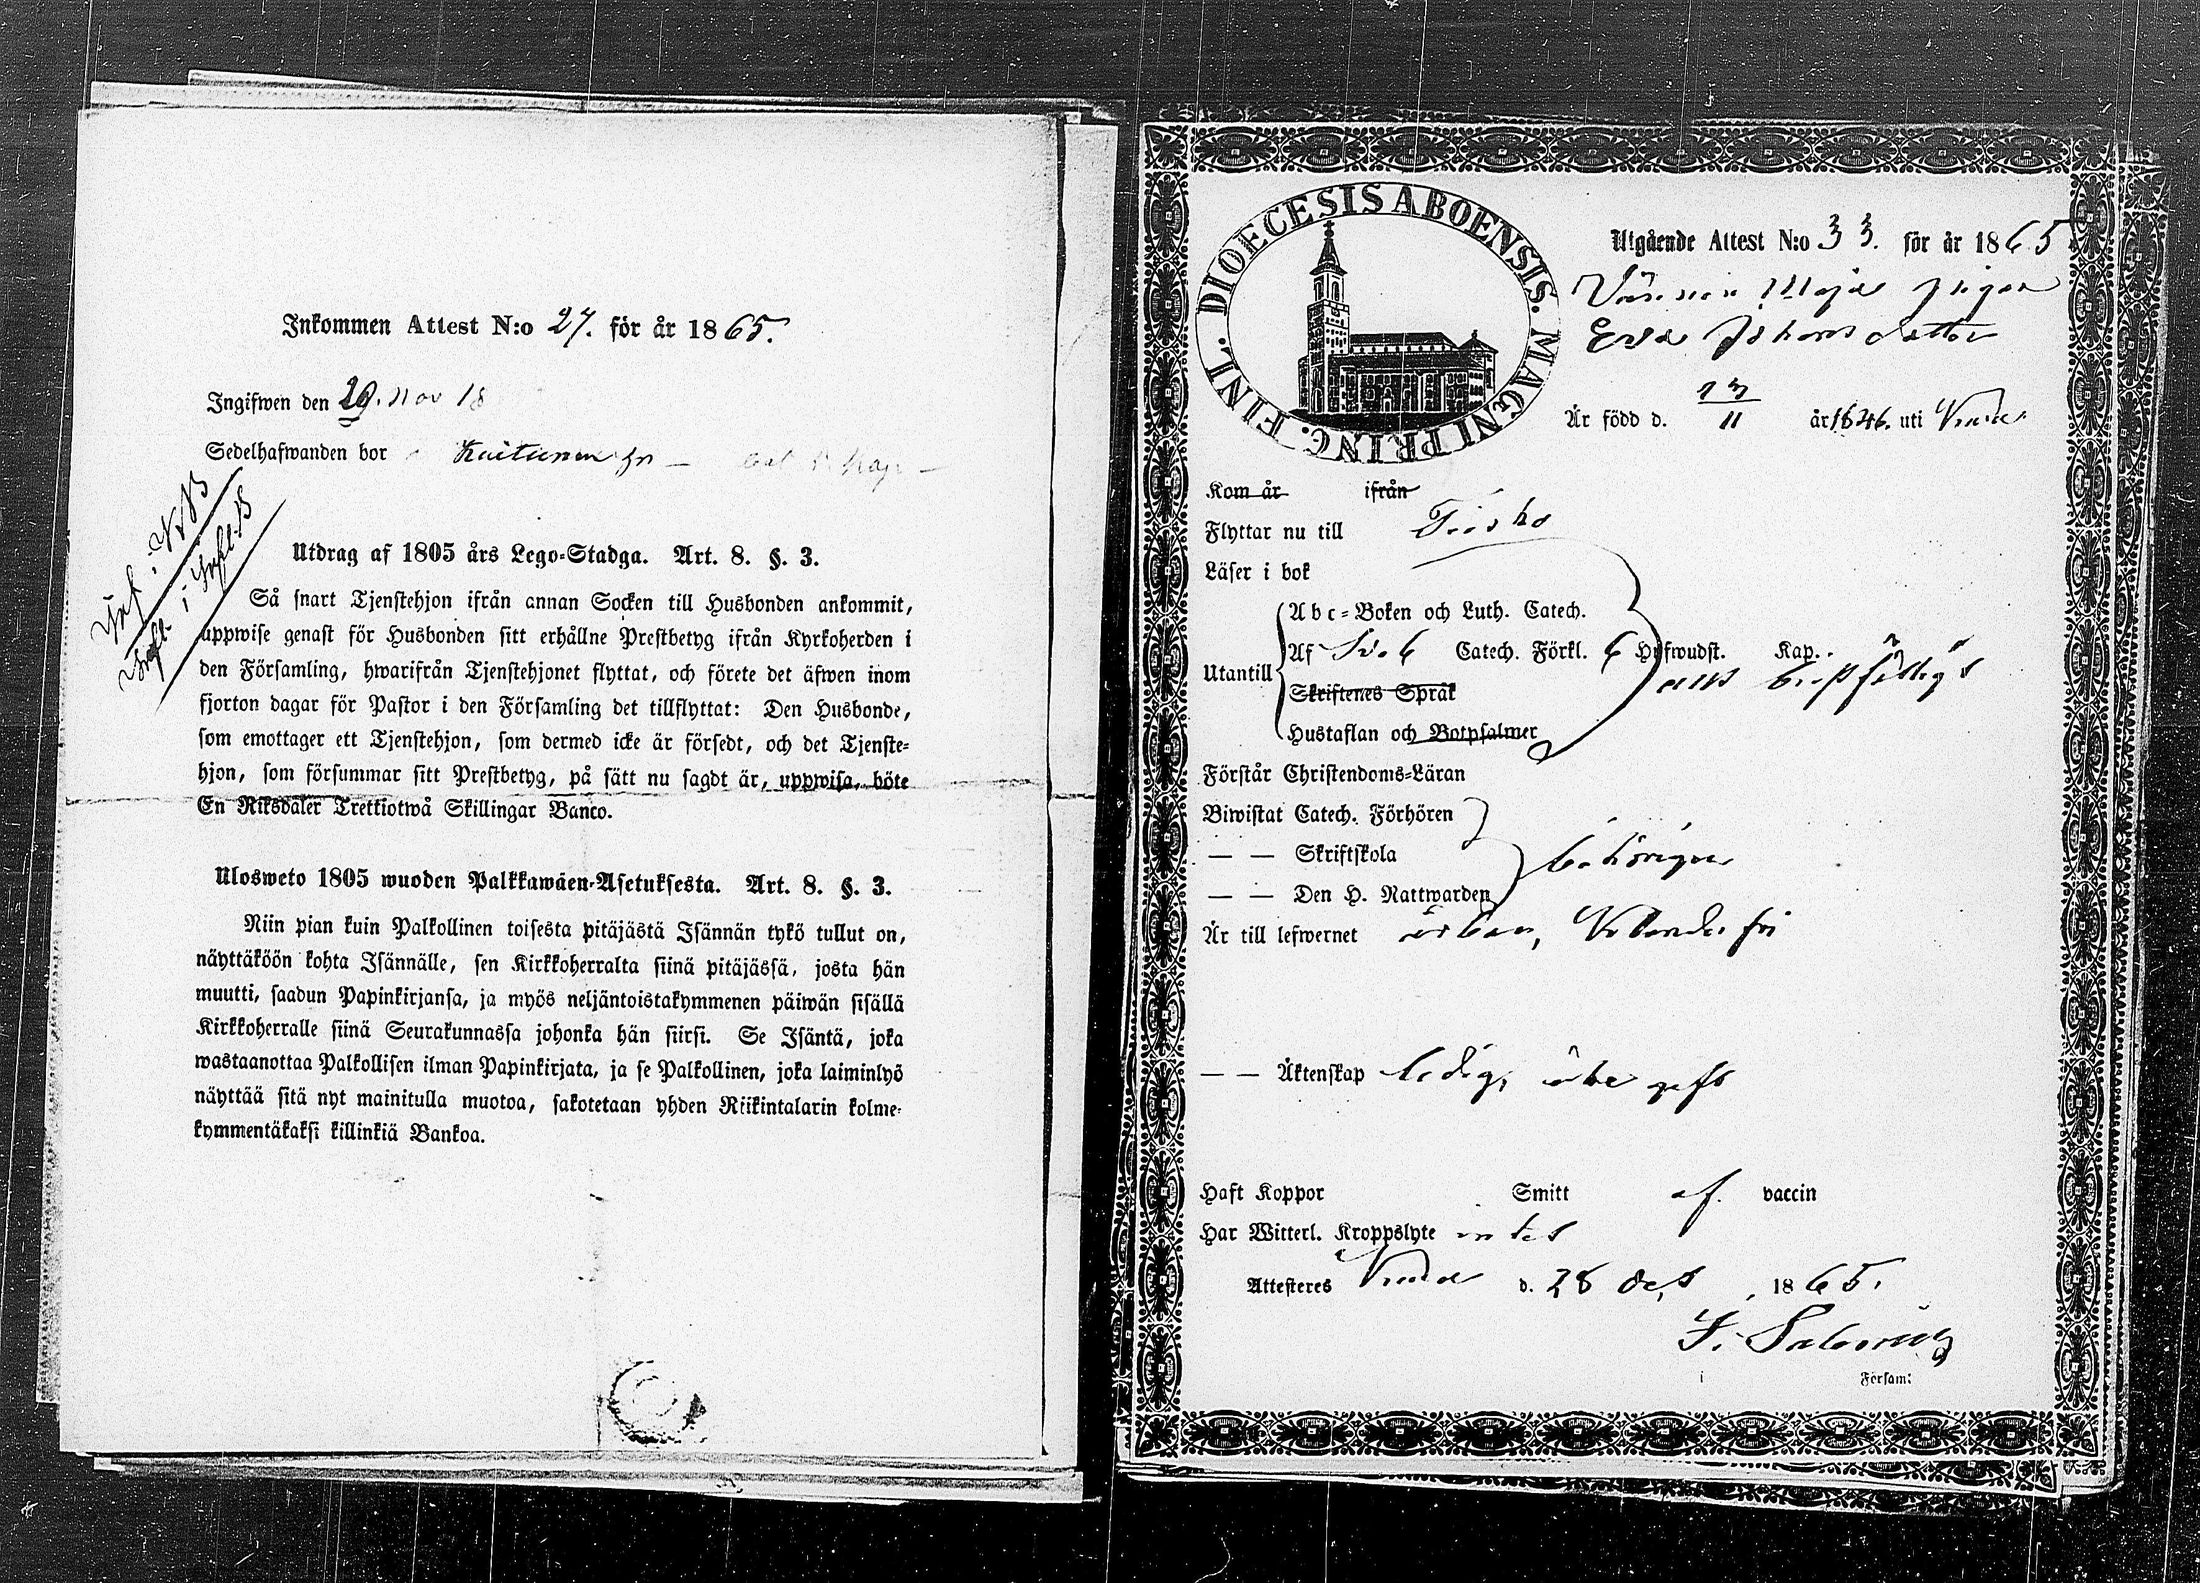 Inkommen Attest N:o 27. för år 1865.
Ingifwen den 20. Nov 18
Sedelhafwanden bor
Utdrag af 1805 års Lego-Stadga. Art. 8. §. 3.
Så snart Tjenstehjon ifrån annan Socken till Husbonden ankommit,
uppwise genast för Husbonden sitt erhållne Prestbetyg ifrån Kyrkoherden i
den Församling, hwarifrån Tjenstehjonet flyttat, och förete det äfwen inom
fjorton dagar för Pastor i den Församling det tillflyttat: Den Husbonde,
som emottager ett Tjenstehjon, som dermed icke är försedt, och det Tjenste-
hjon, som försummar sitt Prestbetyg, på sätt nu sagdt är, uppwisa, böte
En Riksdaler Trettiotwå Skillingar Banco.
Ulosweto 1805 wuoden Palkkawäen-Asetuksesta. Art. 8. §. 3.
Niin pian kuin Palkollinen toisesta pitäjästä Isännän tykö tullut on,
näyttäköön kohta Isännälle, sen Kirkkoherralta siinä pitäjässä, josta hän
muutti, saadun Papinkirjansa, ja myös neljäntoistakymmenen päiwän sisällä
Kirkkoherralle siinä Seurakunnassa johonka hän siirsi. Se Isäntä, joka
wastaanottaa Palkollisen ilman Papinkirjata, ja se Palkollinen, joka laiminlyö
näyttää sitä nyt mainitulla muotoa, sakotetaan yhden Riikintalarin kolme-
kymmentäkaksi killinkiä Bankoa.
DIOECESIS ABOENSIS. MAGNI PRINC. FINL.
Utgående Attest N:o 33. för år 1865
pigan
Eva Johansdotter
Är född d. 13/11 år 1846. uti Virdois
Kom år ifrån
Flyttar nu till Teisko
Läser i bok
Abc-Boken och Luth. Catech.
Utantill
Af Sv. 6 Catech. Förkl. 6 Hufwudst. Kap.
Skriftenes Språk
Hustaflan och Botpsalmer
Förstår Christendoms-Läran
Biwistat Catech. Förhören
— — Skriftskola behörigen
— — Den H. Nattwarden
Är till lefwernet ärbar,
— — Äktenskap ledig,
Haft Koppor Smitt af. vaccin
Har Witterl. Kroppslyte intet
Attesteres d. 28 Oct 1865.
i Försam: